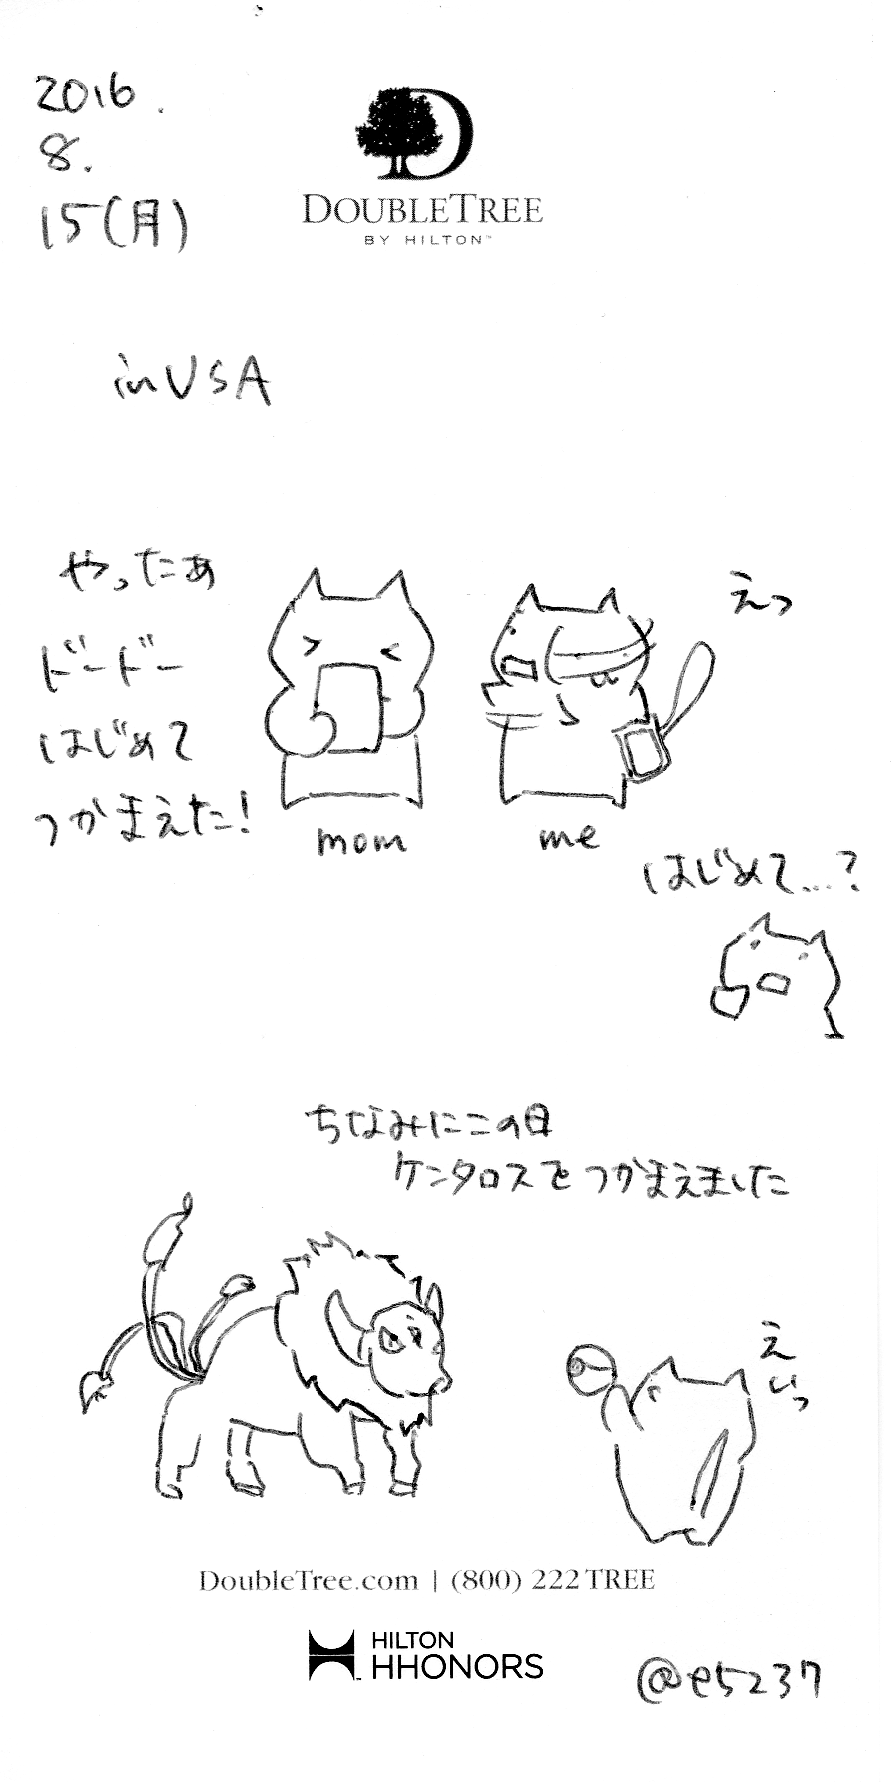 2016.
8.
15(月)
DOUBLETREE
BY HILTON™
in USA
やったぁ
ドードー
はじめて
つかまえた!
えっ
mom
me
はじめて…?
ちなみにこの日
ケンタロスをつかまえました
えいっ
DoubleTree.com | (800) 222 TREE
HILTON
HHONORS
@e5237